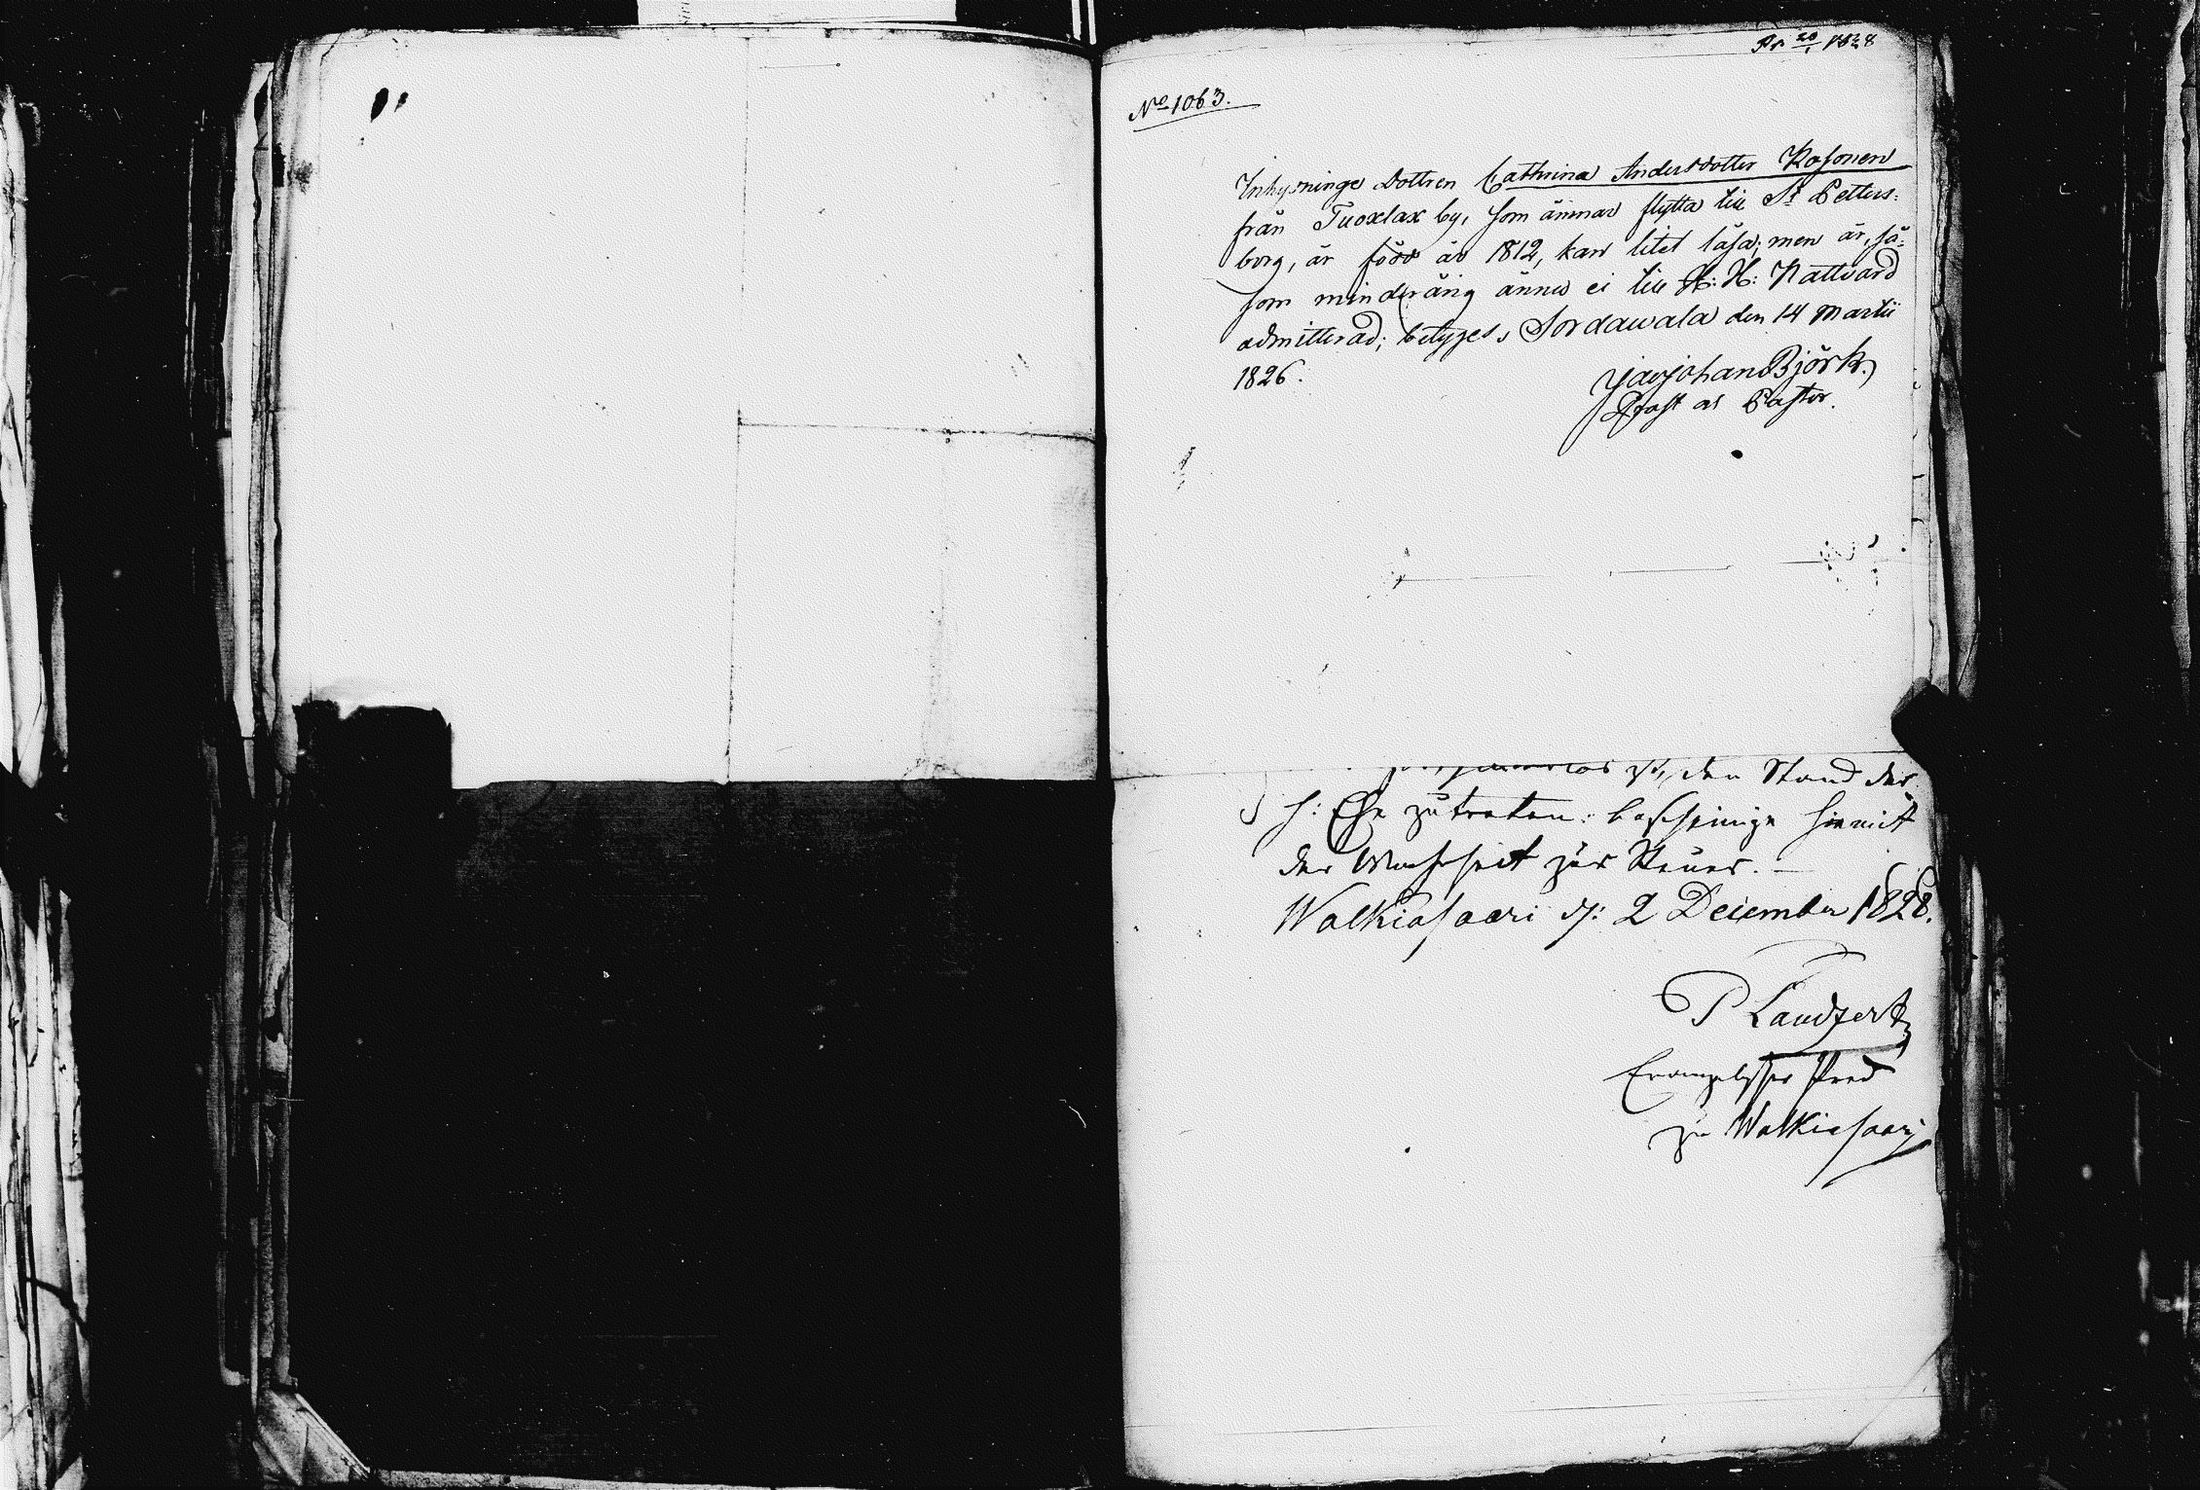 Pr 20/1 1828
No 1063.
Inhysninge dottren Cathrina Andersdotter Kosonen
från Tuoxlax by, som ämnar flytta till St Petters-
borg, är född år 1812, kan litet läsa; men är, så-
som minderårig ännu ei till H: H: Nattvard
admitterad; betyges, Sordawala den 14 Martii
1826.
Johan Björk.
Prost as Pastor.
den Stand der
h: Ehe zu treten. bescheinige hiemit
der Wahrheit zur Steuer. —
Walkiasaari d: 2 December 1828.
P Landzert
Evangelischer Pred
zu Walkiasaari